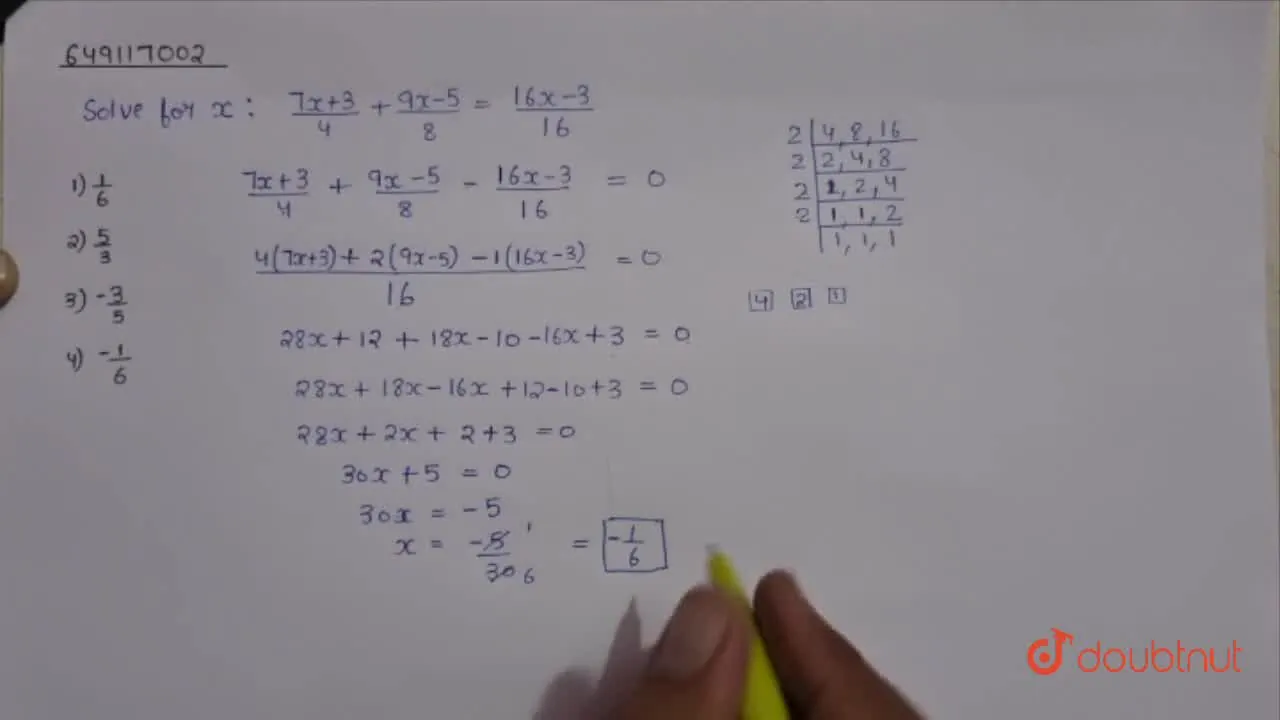 649117002
Solve for x: (7x+3)/4 + (9x-5)/8 = (16x-3)/16
1) 1/6
2) 5/3
3) -3/5
4) -1/6
(7x+3)/4 + (9x-5)/8 - (16x-3)/16 = 0
(4(7x+3)+2(9x-5)-1(16x-3))/16 = 0
28x+12+18x-10-16x+3 = 0
28x+18x-16x+12-10+3 = 0
28x+2x+2+3 = 0
30x+5 = 0
30x = -5
x = -5/30 1 6 = -1/6
2 | 4, 8, 16
2 | 2, 4, 8
2 | 1, 2, 4
2 | 1, 1, 2
| 1, 1, 1
4 2 1
doubtnut